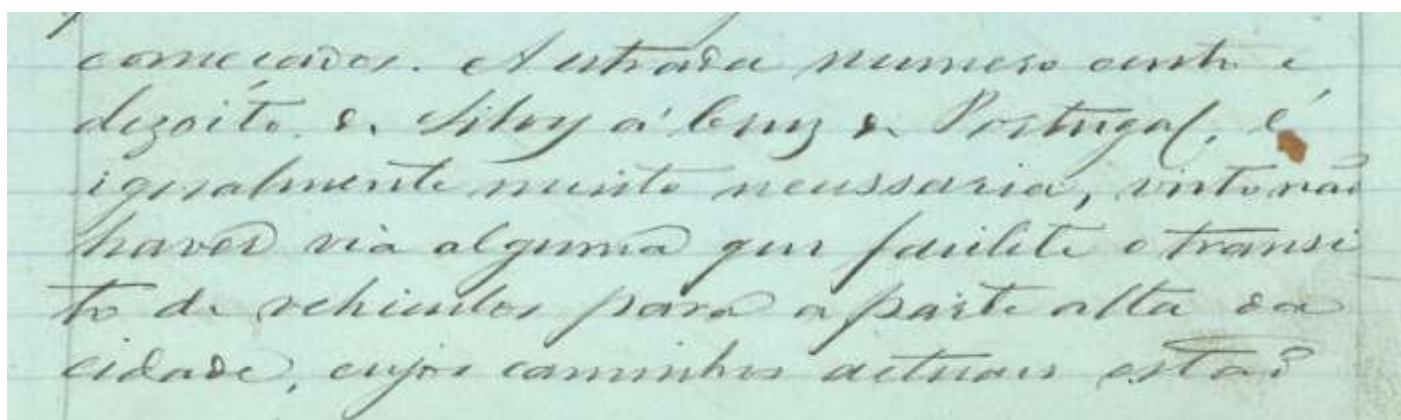 começados. A estrada numero cento e
dezoito, de Silves á Cruz de Portugal, é
igualmente muito necessaria, visto não
haver via alguma que facilite o transi
to de vehiculos para a parte alta da
cidade, cujos caminhos actuaes estão